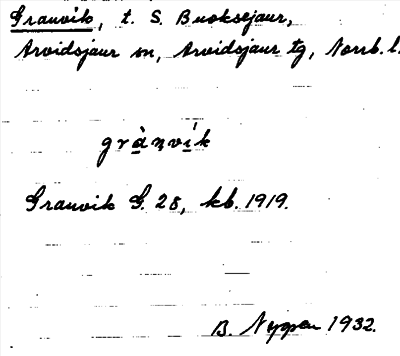 Granvik, t. S. Buoksejaur,
Arvidsjaur sn, Arvidsjaur tg, Norrb. l.
grànvík
Granvik G. 28, kb. 1919.
B. Nygren 1932.